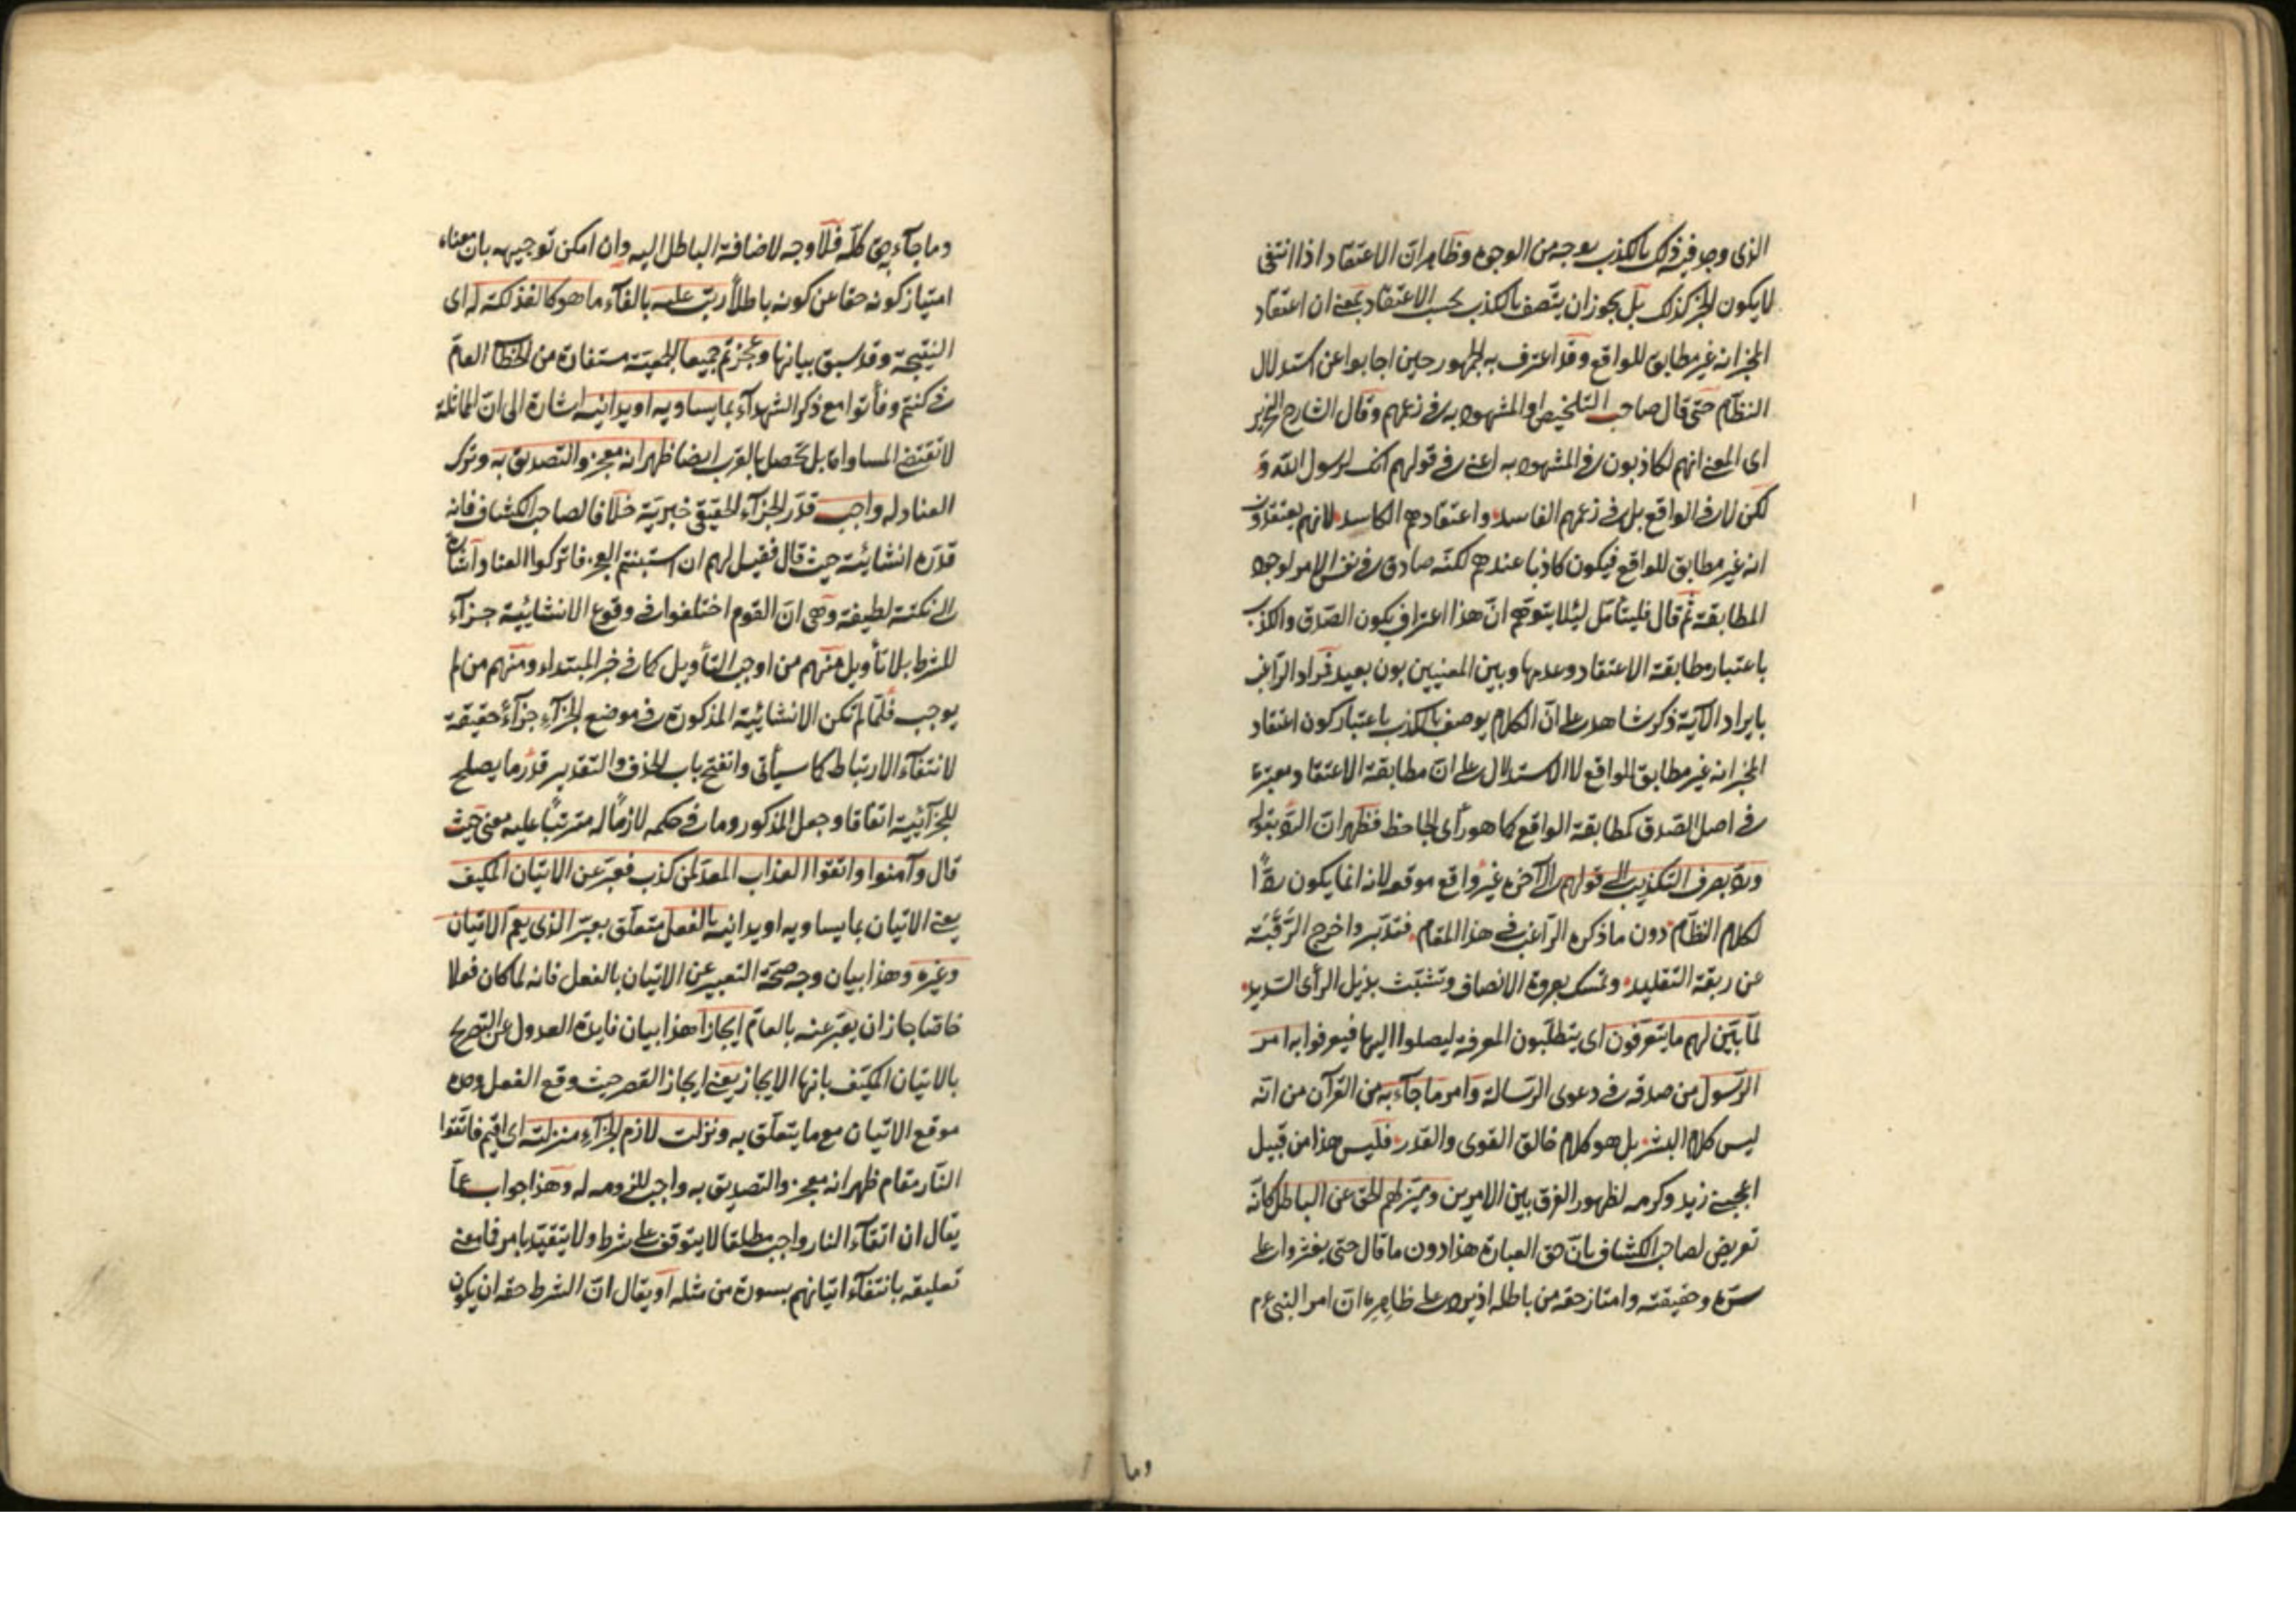 الذى وجد فيه ذلك بالكذب بوجه من الوجوه وظاهر ان الاعتقاد اذا انتفى
لا يكون الخبر كذلك بل يجوز ان يتصف بالكذب بحسب الاعتقاد بمعنى ان اعتقاد
المخبر انه غير مطابق للواقع وقد اعترف به الجمهور حين اجابوا عن استدلال
النظام حتى قال صاحب التلخيص او المشهود به فى زعمهم وقال الشارح النحرير
اى المعنى انهم لكاذبون فى المشهود به اعنى فى قولهم انك لرسول الله و
لكن لا فى الواقع بل فى زعمهم الفاسد واعتقادهم الكاسد لانهم يعتقدون
انه غير مطابق للواقع فيكون كاذبا عندهم لكنه صادق فى نفس الامر لوجود
المطابقة ثم قال فليتأمل ليئلا يتوهم ان هذا اعتراف بكون الصدق والكذب
باعتبار مطابقة الاعتقاد وعدمها وبين المعنيين بون بعيد فمراد الراغب
بايراد الآية ذكر شاهد على ان الكلام يوصف بالكذب باعتبار كون اعتقاد
المخبر انه غير مطابق للواقع لا الاستدلال على ان مطابقة الاعتقاد معتبرة
فى اصل الصدق كمطابقة الواقع كما هو رأى الجاحظ فظهر ان الرد بقوله
ورد بصرف التكذيب الى قولهم الى آخره غير واقع موقعه لانه انما يكون ردا
لكلام النظام دون ما ذكره الراغب فى هذا المقام فتدبر واخرج الرقبة
عن ربقة التقليد وتمسك بعروة الانصاف وتشبث بذيل الرأى السديد
لما بين لهم ما يتعرفون اى يتطلبون المعرفة ليصلوا اليها فيعرفوا به امر
الرسول من صدقه فى دعوى الرسالة وامر ما جآء به من القرآن من انه
ليس كلام البشر بل هو كلام خالق القوى والقدر فليس هذا من قبيل
اعجبنى زيد وكرمه لظهور الفرق بين الامرين وميز لهم الحق عن الباطل كانه
تعريض لصاحب الكشاف بان حق العبارة هذا دون ما قال حتى يعثروا على
سره وحقيقته وامتاز حقه من باطله اذ يرد على ظاهره ان امر النبى عم
وما
وما جآء به حق كله فلا وجه لاضافة الباطل اليه وان امكن توجيهه بان معناه
امتياز كونه حقا عن كونه باطلا رتب عليه بالفآء ما هو كالفذلكة له اى
النتيجة وقد سبق بيانها وعجزتم جميعا الجمعية مستفادة من الخطاب العام
فى كنتم وفأتوا مع ذكر الشهدآء بما يساويه او يدانيه اشارة الى ان المماثلة
لا تقتضى المساواة بل تحصل بالقرب ايضا ظهر انه معجز والتصديق به وترك
العناد له واجب قدر الجزآء الحقيقى خبرية خلافا لصاحب الكشاف فانه
قدره انشائية حيث قال فقيل لهم ان استبنتم العجز فاتركوا العناد واشارة
الى نكتة لطيفة وهى ان القوم اختلفوا فى وقوع الانشائية جزآء
للشرط بلا تأويل منهم من اوجب التأويل كما فى خبر المبتداء ومنهم من لم
يوجب فلما لم تكن الانشائية المذكورة فى موضع الجزآء جزآء حقيقة
لانتفآء الارتباط كما سيأتى وانفتح باب الحذف والتقدير قدر ما يصلح
للجزآئية اتفاقا وجعل المذكور وما فى حكمه لازما له مترتبا عليه معنى حيث
قال وآمنوا واتقوا العذاب المعد لمن كذب فعبر عن الاتيان المكيف
يعنى الاتيان بما يساويه او يدانيه بالفعل متعلق بعبر الذى يعم الاتيان
وغيره وهذا بيان وجه صحة التعبير عن الاتيان بالفعل فانه لما كان فعلا
خاصا جاز ان يعبر عنه بالعام ايجازا هذا بيان فايدة العدول عن التصريح
بالاتيان المكيف بانها الايجاز يعنى ايجاز القصر حيث وقع الفعل وحده
موقع الاتيان مع ما يتعلق به ونزلت لازم الجزآء منزلته اى اقيم فاتقوا
النار مقام ظهر انه معجز والتصديق به واجب للزومه له وهذا جواب عما
يقال ان اتقآء النار واجب مطلقا لا يتوقف على شرط ولا يتقيد بامر فما معنى
تعليقه بانتفآء اتيانهم بسورة من مثله او يقال ان الشرط حقه ان يكون